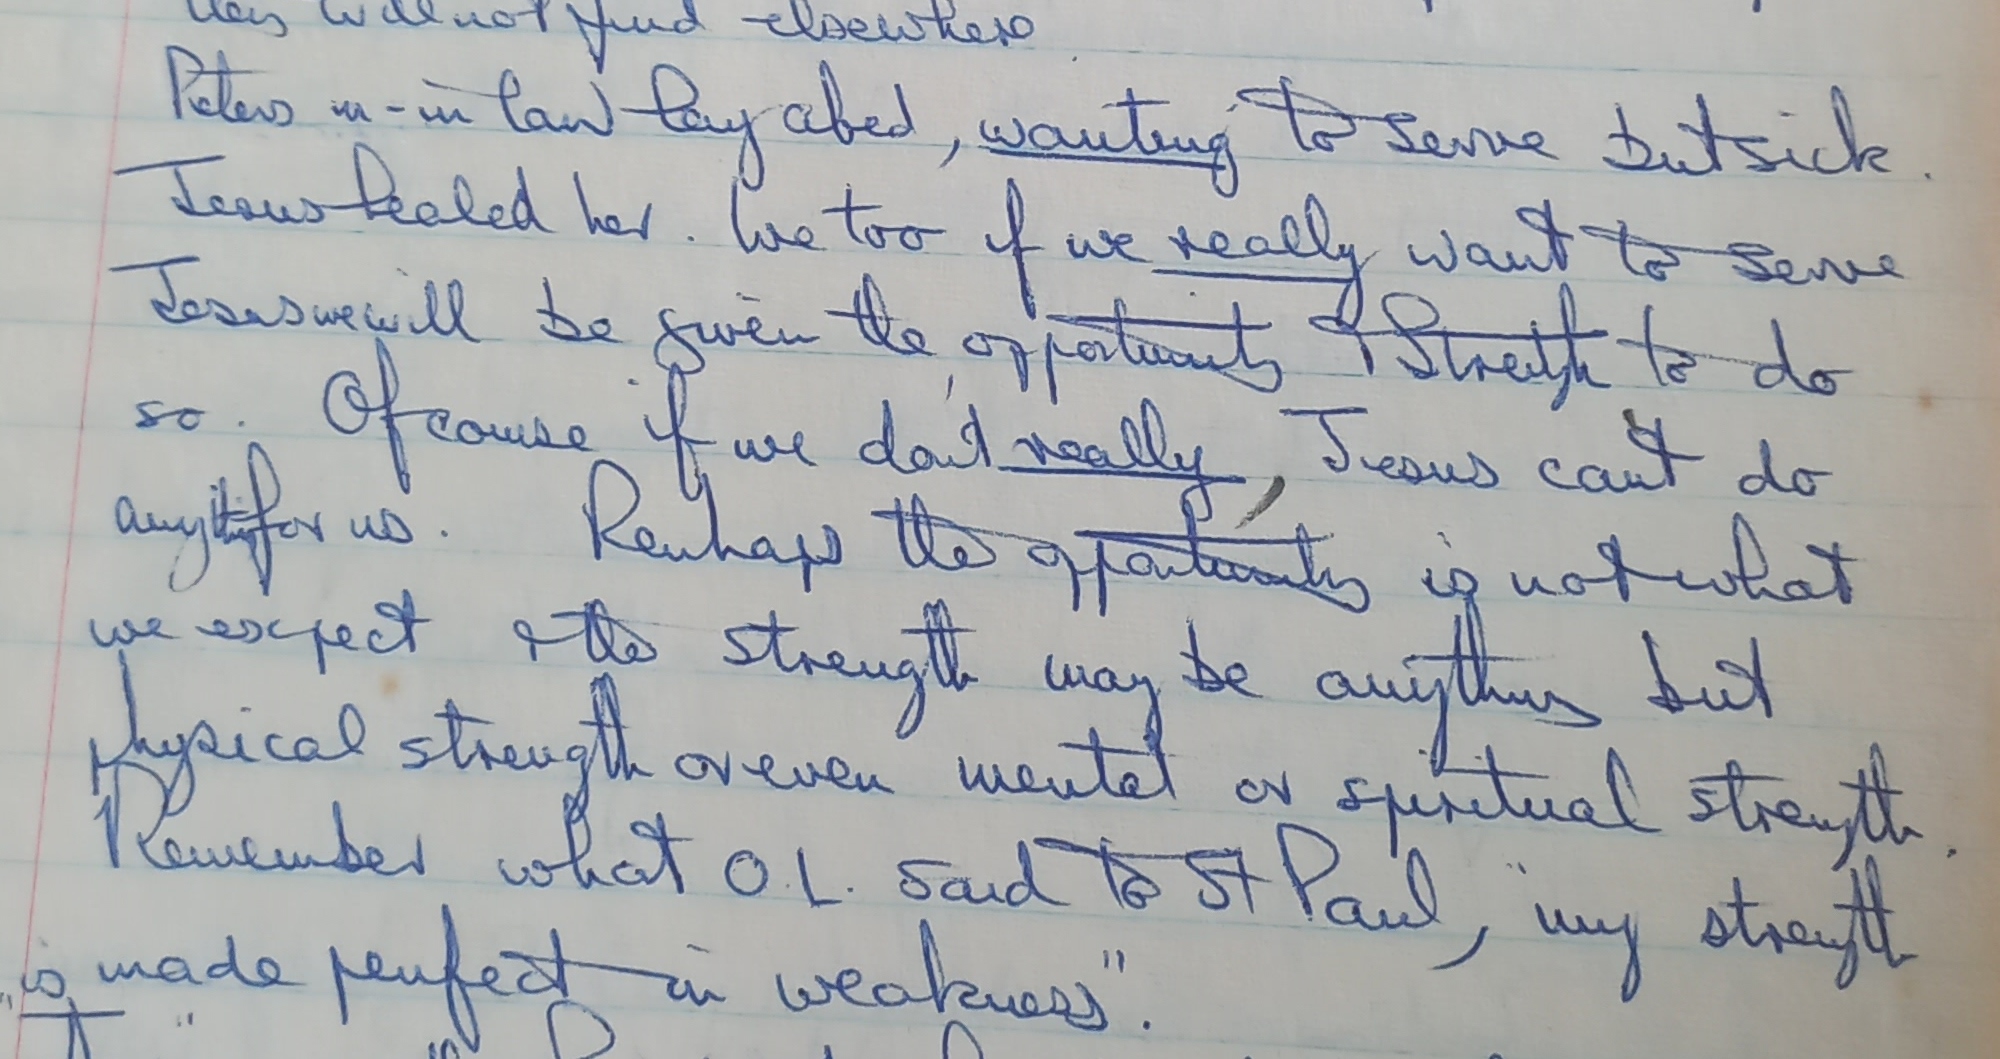 they will not find elsewhere
Peters m-in law lay abed, wanting to serve but sick.
Jesus healed her. We too if we really want to serve
Jesus we will be given the opportunity & strength to do
so. Of course if we don't really, Jesus can't do
anything for us. Perhaps the opportunity is not what
we expect & the strength may be anything but
physical strength or even mental or spiritual strength.
Remember what O.L. said to St Paul, "my strength
is made perfect in weakness".